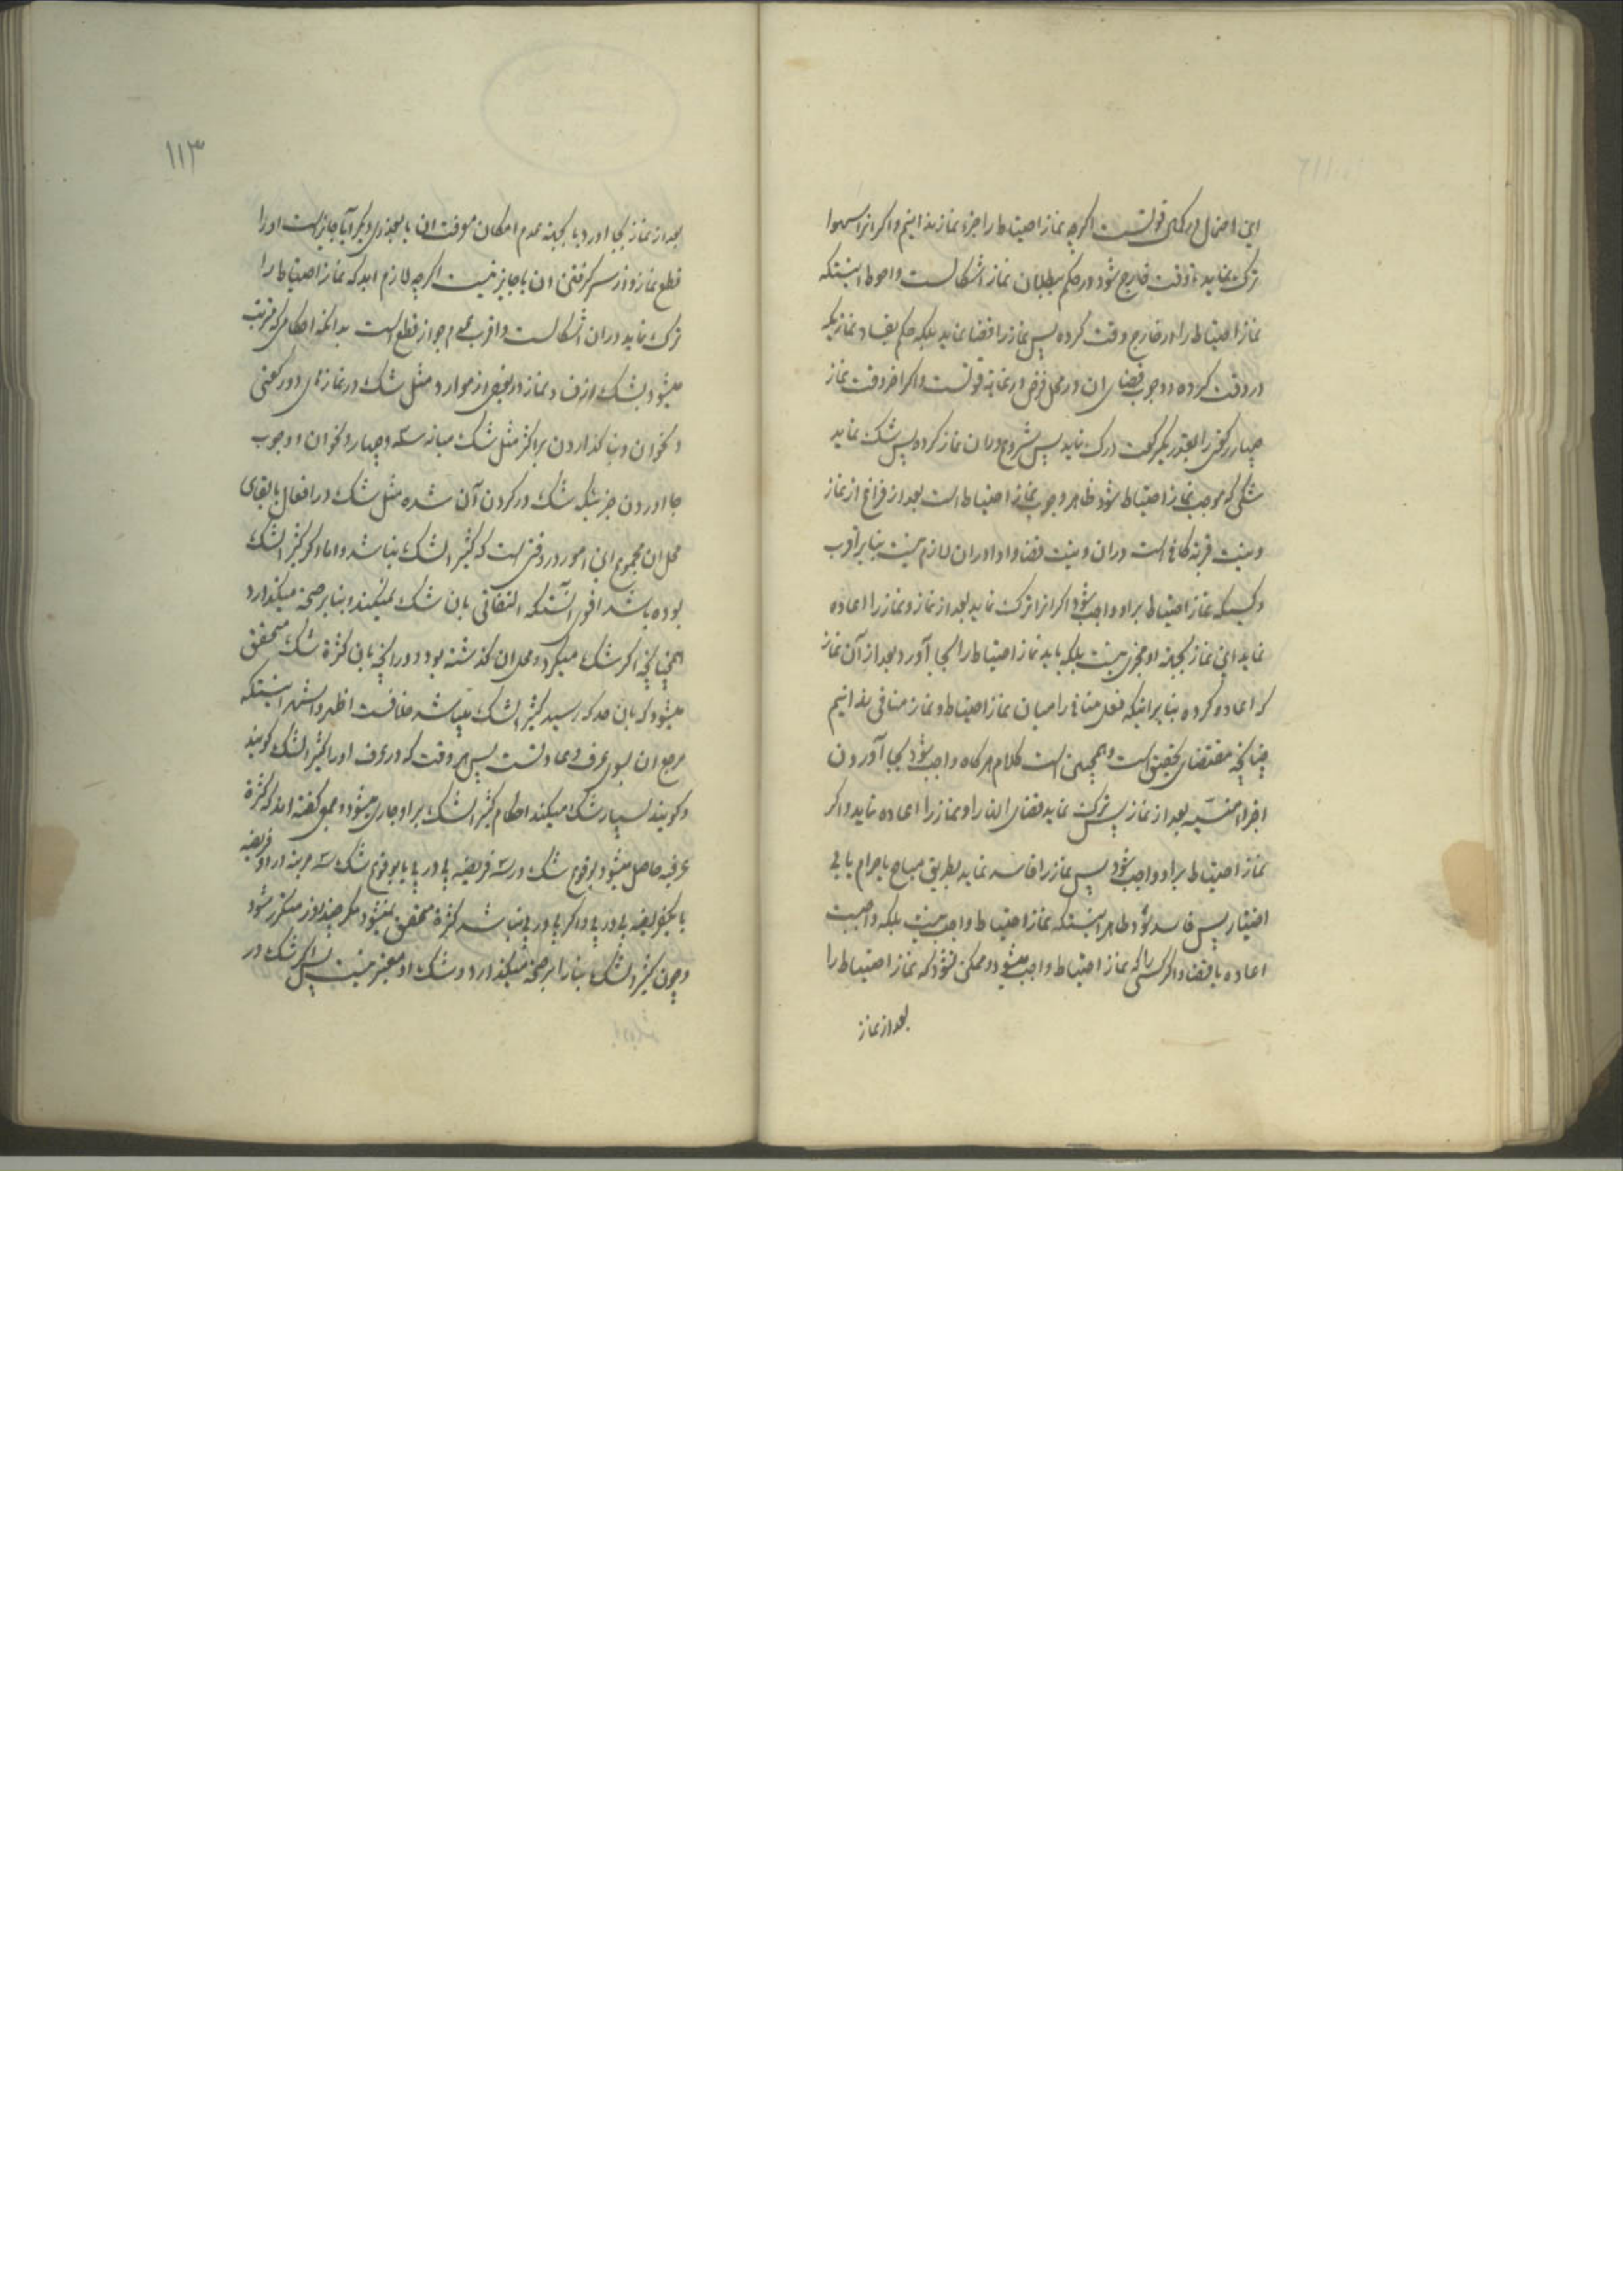 این احتمال در کمال قوتست اگرچه نماز احتیاط را جزء نماز بدانیم و اگر انرا سهوا
ترک نماید تا وقت خارج شود در حکم ببطلان نماز اشکالست و احوط اینستکه
نماز احتیاط را در خارج وقت کرده پس نماز را قضا نماید بلکه حکم بفساد نمازیکه
در وقت کرده و وجوب قضای ان در محل فرض در نهایة قوتست و اگر اخر وقت نماز
چهار رکعتی را بقدر یکرکعت درک نماید پس شروع دران نماز کرده پس شک نماید
شکی که موجب نماز احتیاط شود ظاهر وجوب نماز احتیاط است بعد از فراغ از نماز
و نیت قربة کافی است دران و نیت قضا و ادا دران لازم نیست بنا بر اقرب
و کسیکه نماز احتیاط بر او واجب شود اگر انرا ترک نماید بعد از نماز و نماز را اعاده
نماید این نماز بجهة او مجزی نیست بلکه باید نماز احتیاط را بجا آورد و بعد از آن نماز
که اعاده کرده بنا بر اینکه فعل منافی را میان نماز احتیاط و نماز منافی بدانیم
چنانچه مقتضای تحقیق است و همچنین است کلام هر گاه واجب شود بجا آوردن
اجزاء منسیه بعد از نماز پس ترک نماید قضای انها را و نماز را اعاده نماید و اگر
نماز احتیاط بر او واجب شود پس نماز را فاسد نماید بطریق مباح یا حرام یا بی
اختیار پس فاسد شود ظاهر اینستکه نماز احتیاط واجب نیست بلکه واجبست
اعاده یا قضا و اگر کسی را که نماز احتیاط واجب میشود و ممکن نشود که نماز احتیاط را
بعد از نماز
۱۱۳
بعد از نماز بجا اورد یا بجهة عدم امکان موقت ان یا بعذری دیگر آیا جایز است او را
قطع نماز و از سر گرفتن ان یا جایز نیست اگرچه لازم اید که نماز احتیاط را
ترک نماید دران اشکالست و اقرب عدم جواز قطع است بدانکه احکامی که مترتب
میشود بشک از فساد نماز در بعضی از موارد مثل شک در نمازهای دو رکعتی
و نحو ان و بنا گذاردن بر اکثر مثل شک میانه سه و چهار و نحو ان و وجوب
جا اوردن جزئیکه شک در کردن آن شده مثل شک در افعال با بقای
محل ان مجموع این امور در وقتی است که کثیر الشک نباشد و اما اگر کثیر الشک
بوده باشد اقوی انستکه التفاتی بان شک نمیکند و بنا بر صحة میگذارد
همچنانچه اگر شک میکرد و محل ان گذشته بود و در انچه بان کثرة شک متحقق
میشود که بان حد که رسید کثیر الشک میباشد خلافست اظهر و اشهر اینستکه
مرجع ان بسوی عرف و عادتست پس هر وقت که در عرف او را کثیر الشک گویند
و گویند بسیار شک میکند احکام کثیر الشک بر او جاری میشود و جمعی گفته اند که کثرة
عرفیه حاصل میشود بوقوع شک در سه فریضه پی در پی یا بوقوع شک سه مرتبه در دو فریضه
یا یکفریضه پی در پی و اگر پی در پی نباشد کثرة متحقق نمیشود مگر چند روز متکرر شود
و چون کثیر الشک بنا را بر صحة میگذارد و شک او معتبر نیست پس اگر شک در